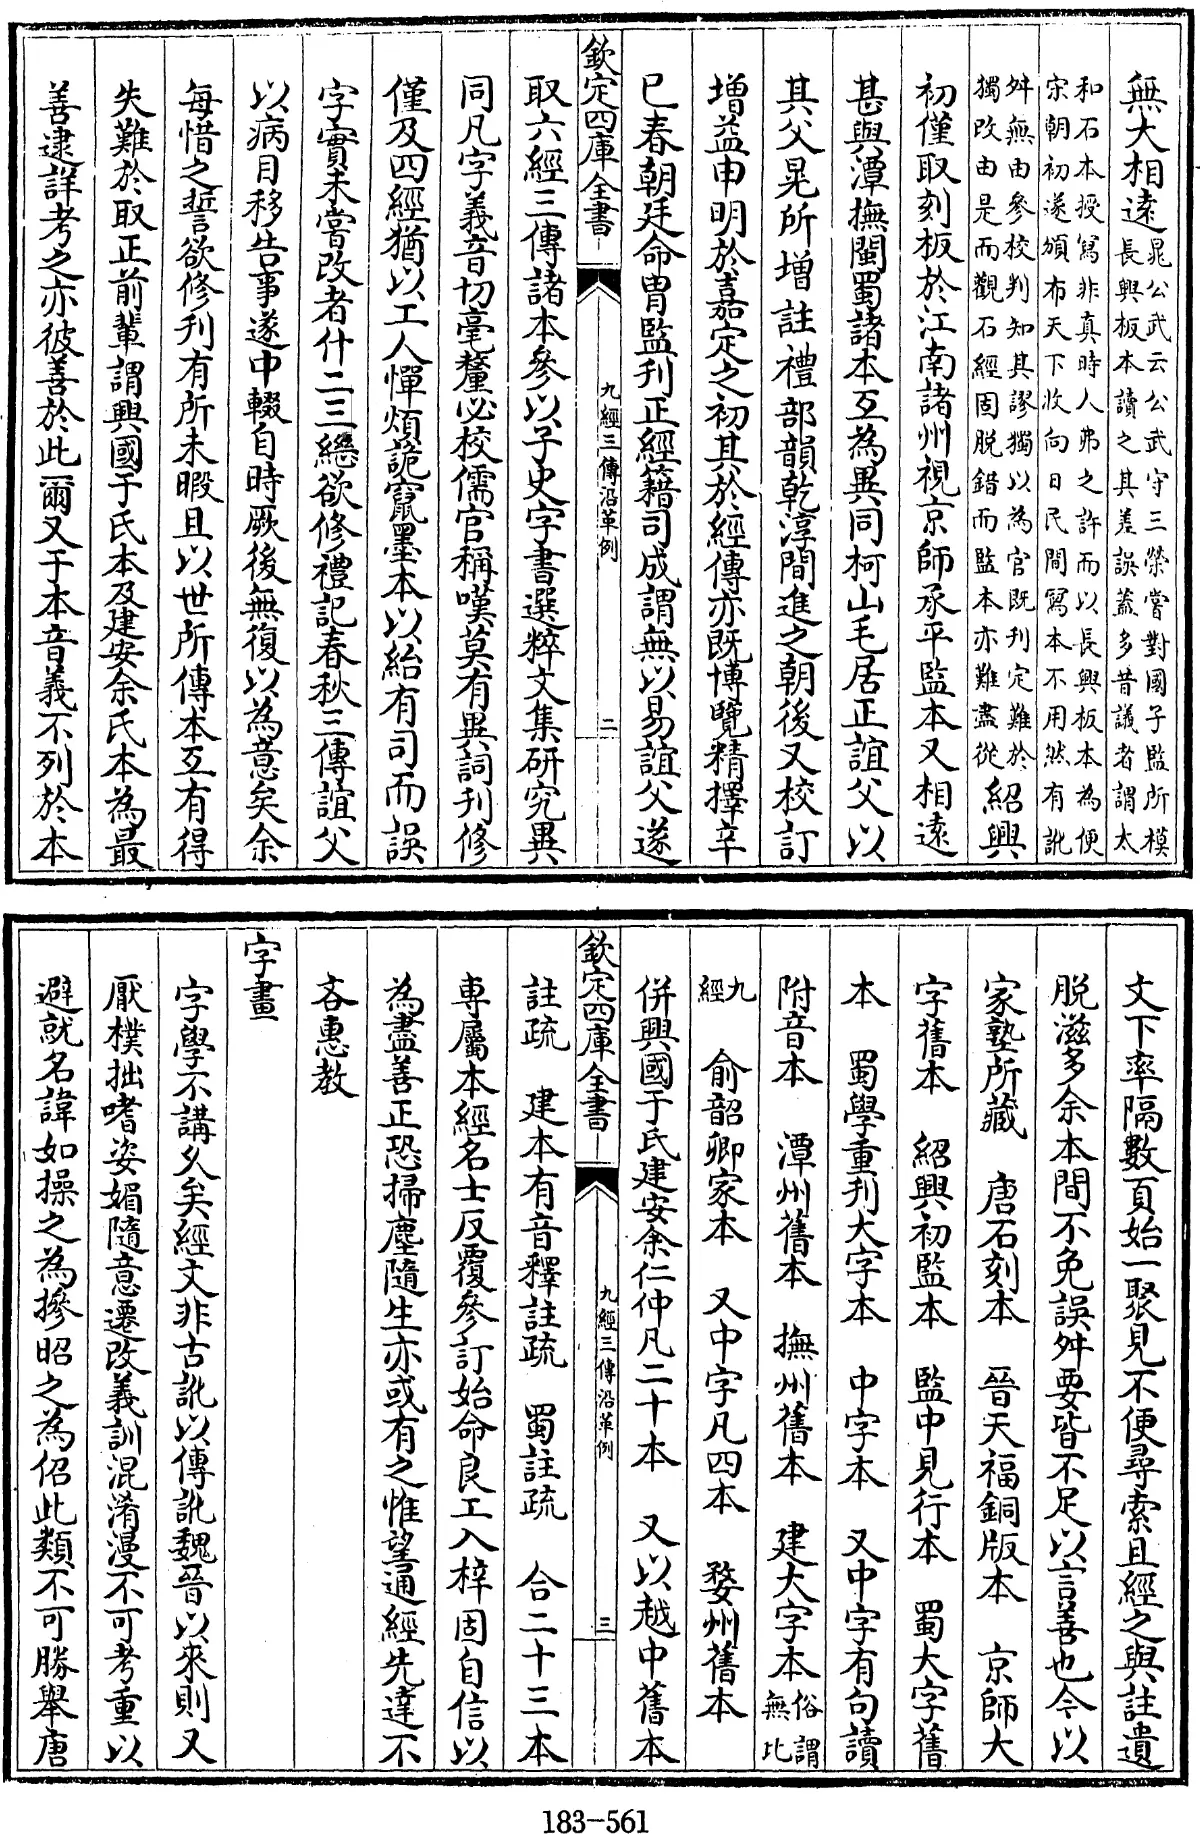 無大相遠晁公武云公武守三榮嘗對國子監所模
長興板本讀之其差誤蓋多昔議者謂太
和石本授寫非真時人弗之許而以長興板本為便
宋朝初遂頒布天下收向日民間寫本不用然有訛
舛無由參校判知其謬獨以為官既刊定難於
獨改由是而觀石經固脫錯而監本亦難盡從紹興
初僅取刻板於江南諸州視京師承平監本又相遠
甚與潭撫閩蜀諸本互為異同柯山毛居正誼父以
其父晃所增註禮部韻乾淳間進之朝後又校訂
增益申明於嘉定之初其於經傳亦既博覽精擇辛
巳春朝廷命胄監刊正經籍司成謂無以易誼父遂
欽定四庫全書 九經三傳沿革例 二
取六經三傳諸本參以子史字書選粹文集研究異
同凡字義音切毫釐必校儒官稱嘆莫有異詞刊修
僅及四經猶以工人憚煩詭竄墨本以紿有司而誤
字實未嘗改者什二三繼欲修禮記春秋三傳誼父
以病目移告事遂中輟自時厥後無復以為意矣余
每惜之誓欲修刊有所未暇且以世所傳本互有得
失難於取正前輩謂興國于氏本及建安余氏本為最
善逮詳考之亦彼善於此爾又于本音義不列於本
文下率隔數頁始一聚見不便尋索且經之與註遺
脫滋多余本間不免誤舛要皆不足以言善也今以
家塾所藏 唐石刻本 晉天福銅版本 京師大
字舊本 紹興初監本 監中見行本 蜀大字舊
本 蜀學重刊大字本 中字本 又中字有句讀
附音本 潭州舊本 撫州舊本 建大字本俗謂
無比
九
經 俞韶卿家本 又中字凡四本 婺州舊本
併興國于氏建安余仁仲凡二十本 又以越中舊本
欽定四庫全書 九經三傳沿革例 三
註疏 建本有音釋註疏 蜀註疏 合二十三本
專屬本經名士反覆參訂始命良工入梓固自信以
為盡善正恐掃塵隨生亦或有之惟望通經先達不
吝惠教
字畫
字學不講久矣經文非古訛以傳訛魏晉以來則又
厭樸拙嗜姿媚隨意遷改義訓混淆漫不可考重以
避就名諱如操之為摻昭之為佋此類不可勝舉唐
183-561